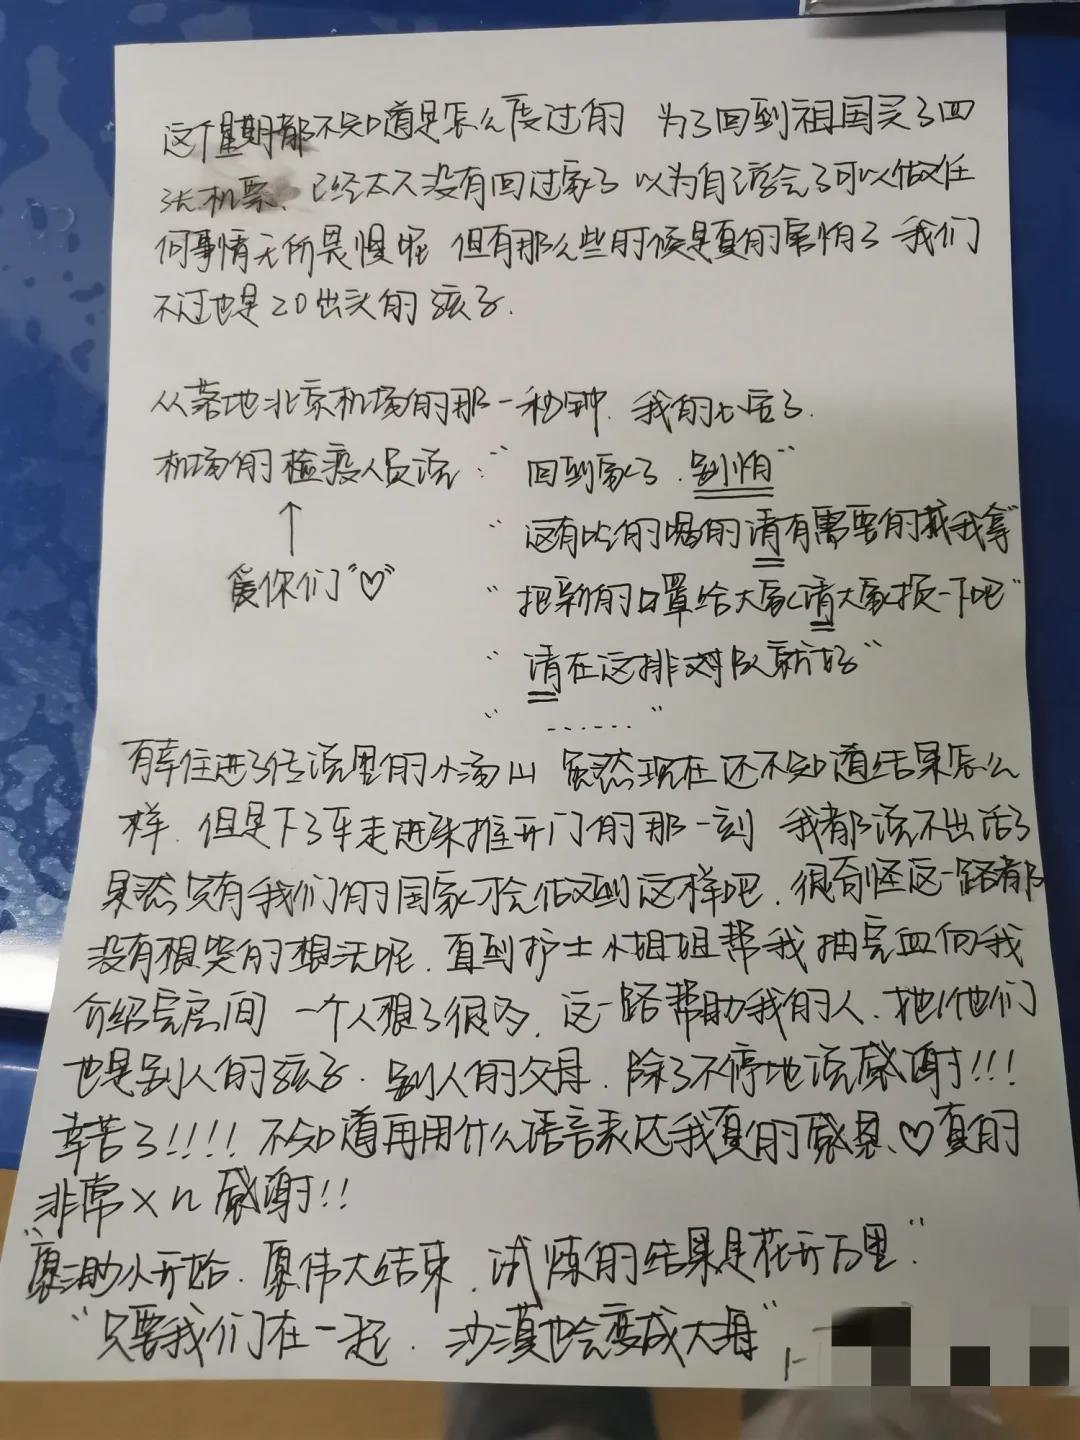 这个星期都不知道是怎么度过的 为了回到祖国买了四
张机票、已经太久没有回过家了 以为自己学会了可以做任
何事情无所畏惧呢 但有那么些时候是真的害怕了 我们
不过也是20出头的孩子.
从落地北京机场的那一秒钟. 我的心落了.
机场的检疫人员说:“回到家了.别怕”
↑
爱你们“♡”
“还有吃的喝的请有需要的找我拿”
“把新的口罩给大家请大家换一下吧”
“请在这排队就好”
“......”
有幸住进了传说里的小汤山 虽然现在还不知道结果怎么
样. 但是下了车走进来推开门的那一刻 我都说不出话了
果然只有我们的国家才会做到这样吧. 很奇怪这一路都
没有想哭的想法呢. 直到护士小姐姐帮我抽完血向我
介绍完房间 一个人想了很多. 这一路帮助我的人. 她/他们
也是别人的孩子. 别人的父母. 除了不停地说感谢!!!
辛苦了!!!! 不知道再用什么语言表达我真的感恩、♡真的
非常×n感谢!!
“愿渺小开始. 愿伟大结束. 试炼的结果是花开万里.”
“只要我们在一起. 沙漠也会变成大海”